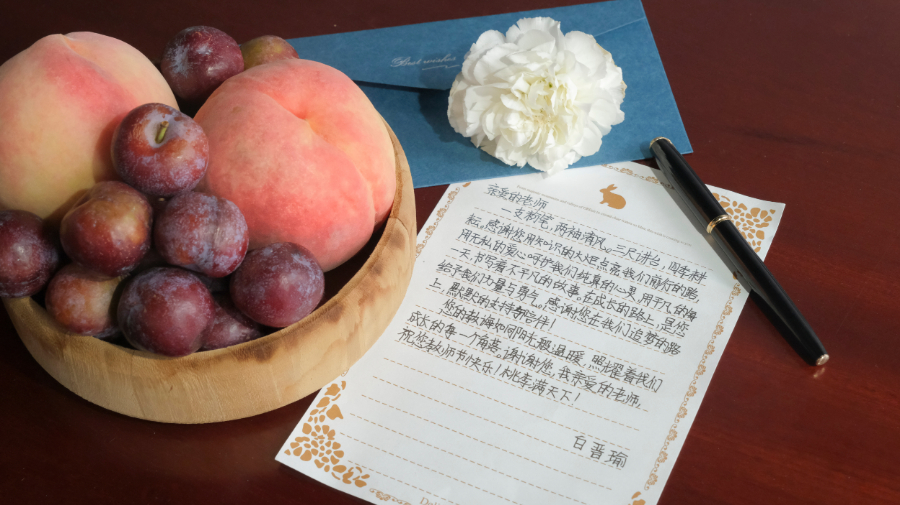 Best wishes
亲爱的老师
一支粉笔,两袖清风。三尺讲台,四季耕
耘,感谢您用知识的火炬点亮我们前行的路,
用无私的爱心呵护我们纯真的心灵,用平凡的每
一天,书写着不平凡的故事,在成长的路上,是您
给予我们力量与勇气,感谢您在我们追梦的路
上,默默的支持和陪伴!
您的教诲如同阳光般温暖,照耀着我们
成长的每一个角落。谢谢您,我亲爱的老师,
祝您教师节快乐!桃李满天下!
白晋瑜